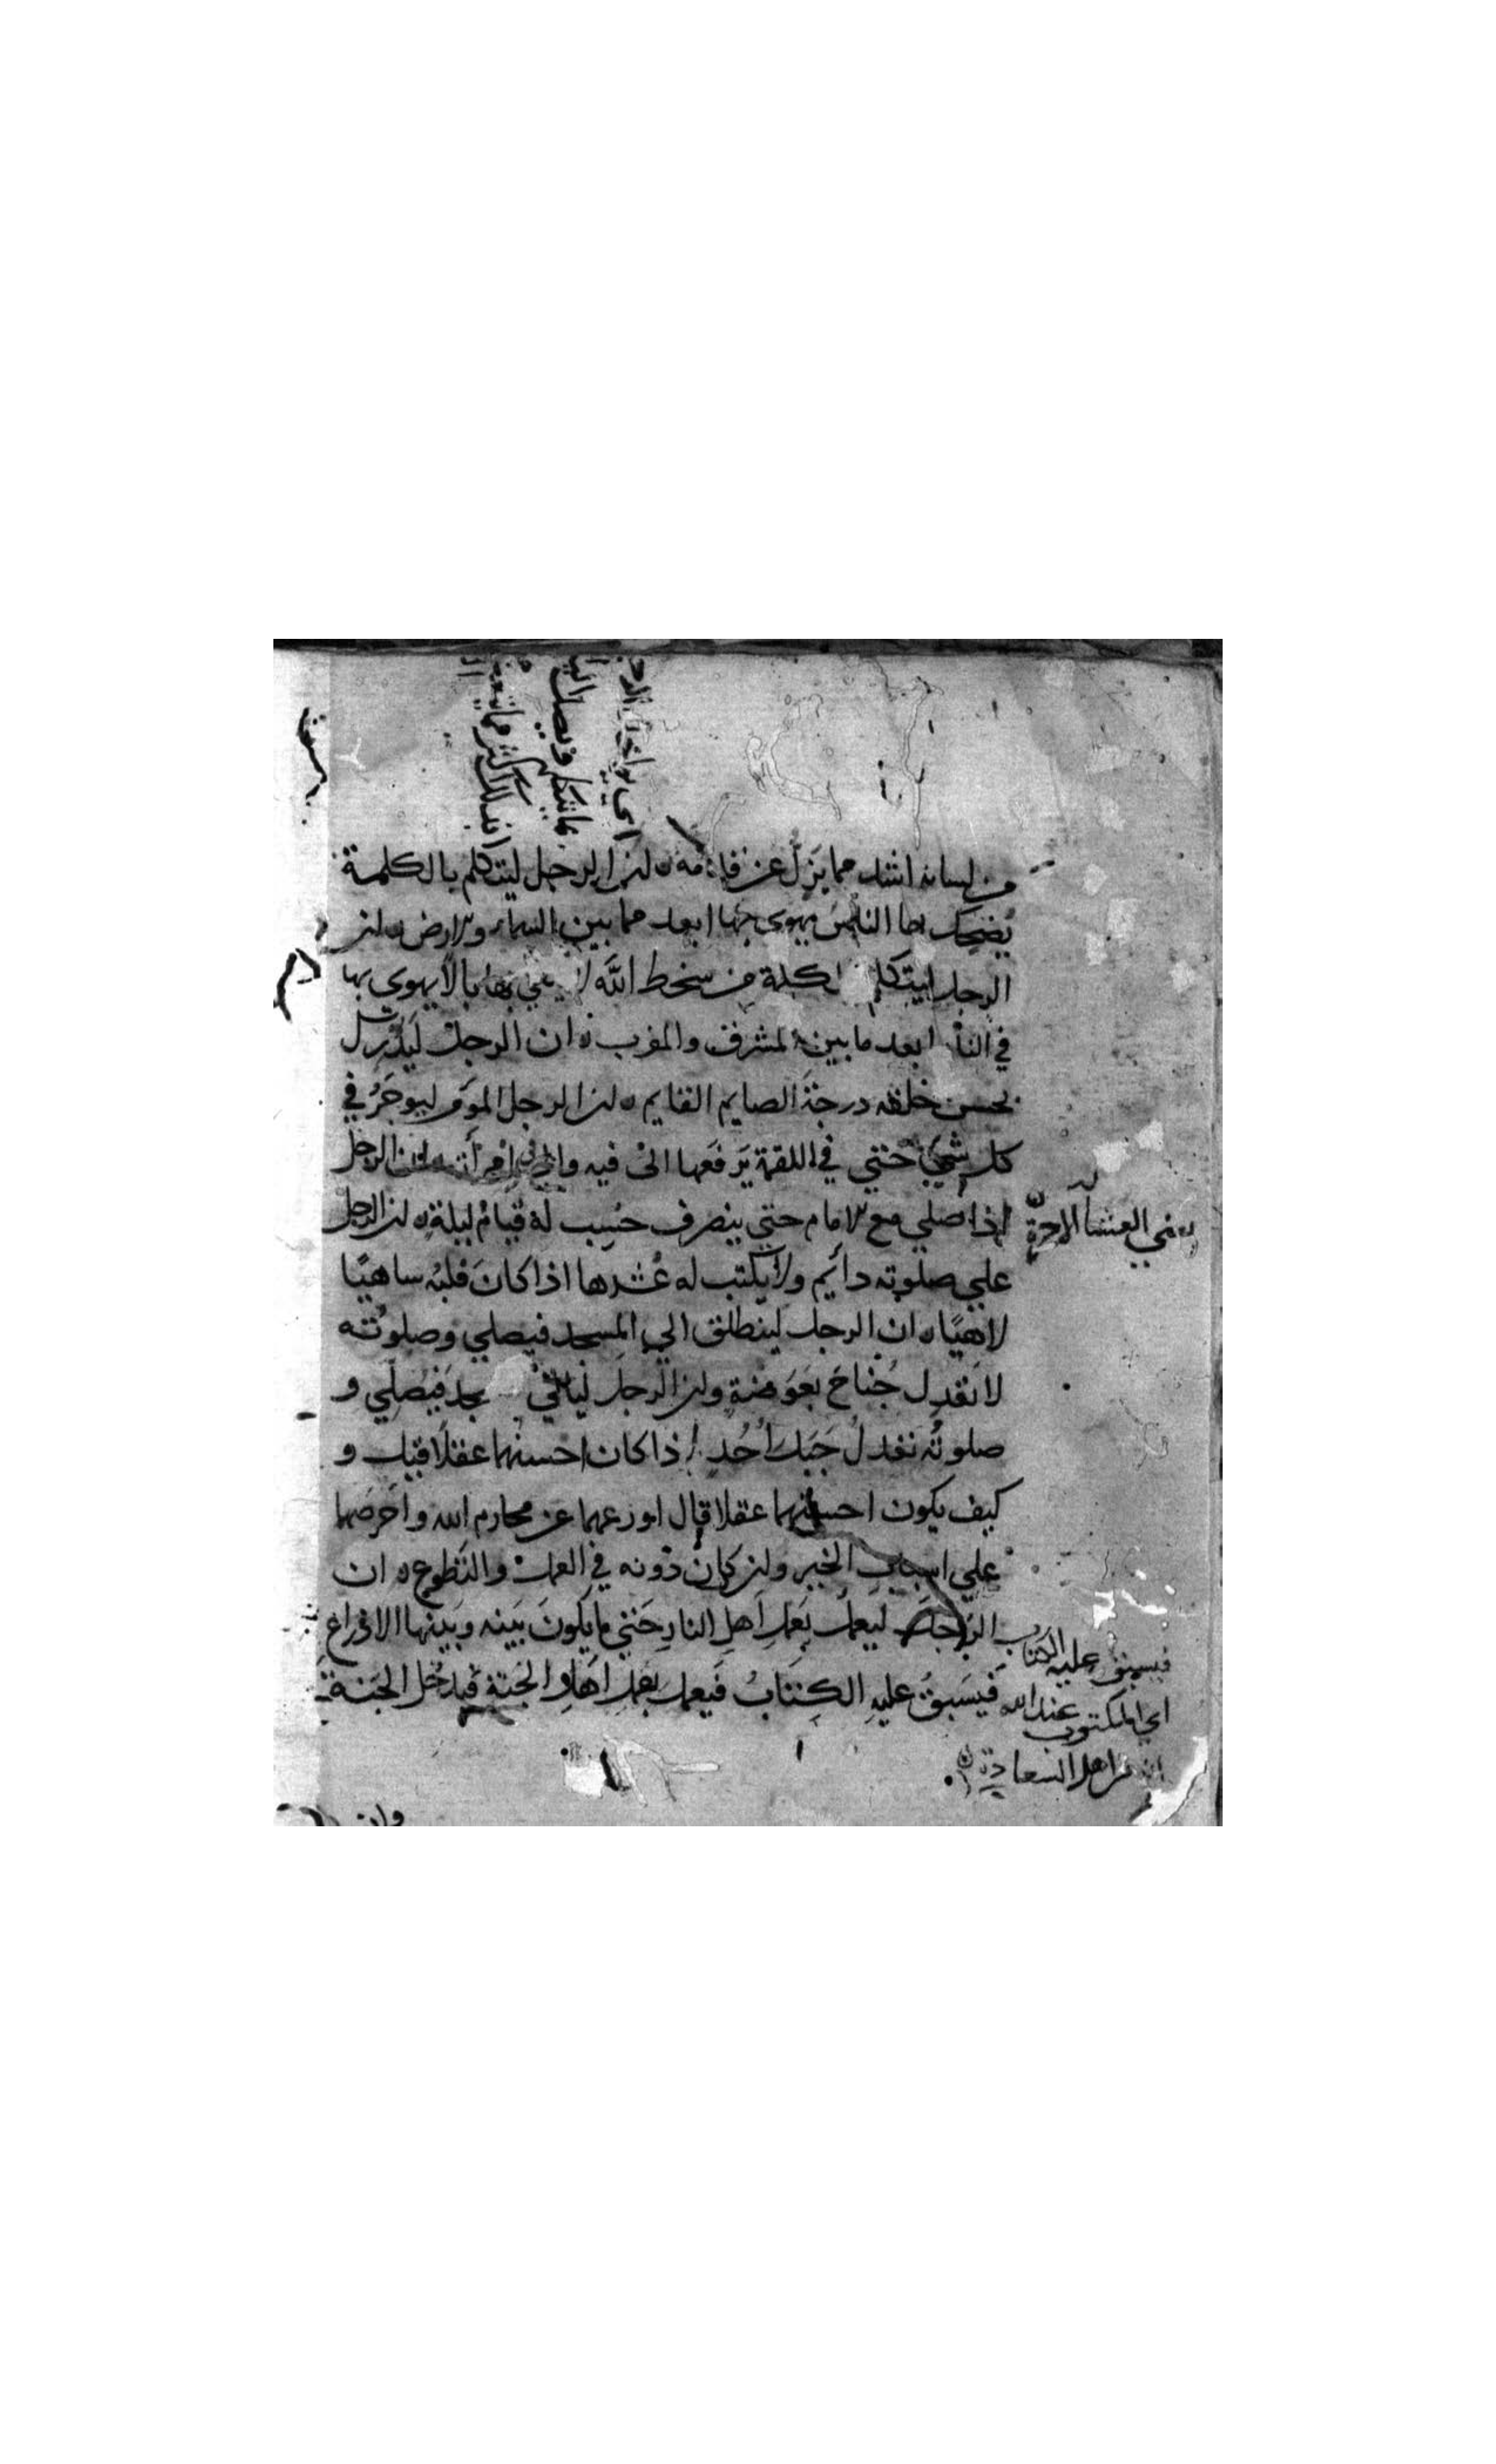 من لسانه اشد مما يزل عن قدمه ه ان الرجل ليتكلم بالكلمة
يضحك بها الناس يهوى بها ابعد مما بين السماء والارض ه ان
الرجل ليتكلم الكلمة من سخط الله لا بها بالا يهوي بها
في النار ابعد ما بين المشرق والمغرب ه ان الرجل ليدرك
بحسن خلقه درجة الصايم القايم ه ان الرجل المومن ليوجر في
كل شيء حتي في اللقمة يرفعها الى فيه امرأته ان الرجل
اذا صلي مع الامام حتي ينصرف حسب له قيام ليلة ه ان الرجل
علي صلوته دائم ولا يكتب له عشرها اذا كان قلبه ساهيا
لاهيا ه ان الرجل لينطلق الي المسجد فيصلي وصلوته
لا تعدل جناح بعوضة وان الرجل لياتي فيصلي و
صلوته تعدل جبل احد اذا كان احسنهما عقلا قيل و
كيف يكون احسنهما عقلا قال اورعهما عن محارم الله واحرصهما
علي اسباب الخير وان كان دونه في العمل والتطوع ه ان
الرجل ليعمل بعمل اهل النار حتي ما يكون بينه وبينها الا ذراع
فيسبق عليه الكتاب فيعمل بعمل اهل الجنة فيدخل الجنة
يعني العشاء الاخرة
فيسبق عليه الكتاب
اي المكتوب عند الله
من اهل السعادة
وان